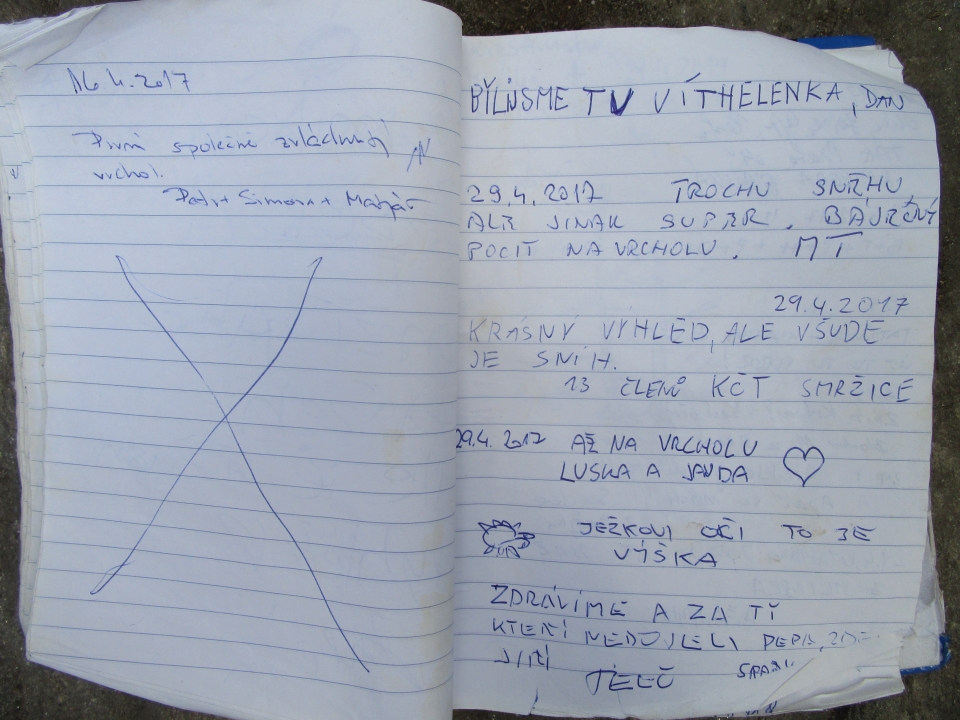 16.4.2017
První společně zvládnutý
vrchol.
Petr + Simona + Matyáš
BYLI JSME TU VÍT HELENKA, DAN
29.4.2017 TROCHU SNĚHU,
ALE JINAK SUPER. BÁJEČNÝ
POCIT NA VRCHOLU. MT
29.4.2017
KRÁSNÝ VÝHLED, ALE VŠUDE
JE SNÍH.
13 ČLENŮ KČT SMRŽICE
29.4.2017 AŽ NA VRCHOLU
LUSKA A JANDA
JEŽKOVI OČI TO JE
VÝŠKA
ZDRAVÍME A ZA TY
KTEŘÍ NEDOJELI PEPA,
JIŘÍ
TELČ